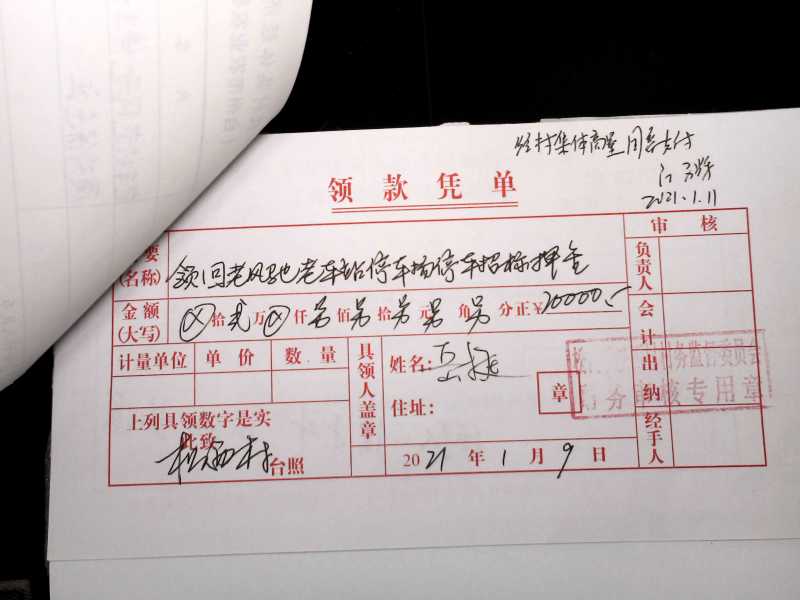 经村集体商量同意支付
2021.1.11
领款凭单
要
(名称)
领回老风驰老车站停车场停车招标押金
审核
负责人
金额
(大写)
拾贰万仟另佰另拾另元另角另分正¥20000.-
会计
计量单位 单价 数量
具领人盖章
姓名:
住址:
章
出纳
务监督委员会
务审核专用章
上列具领数字是实
此致
村
台照
2021年1月9日
经手人